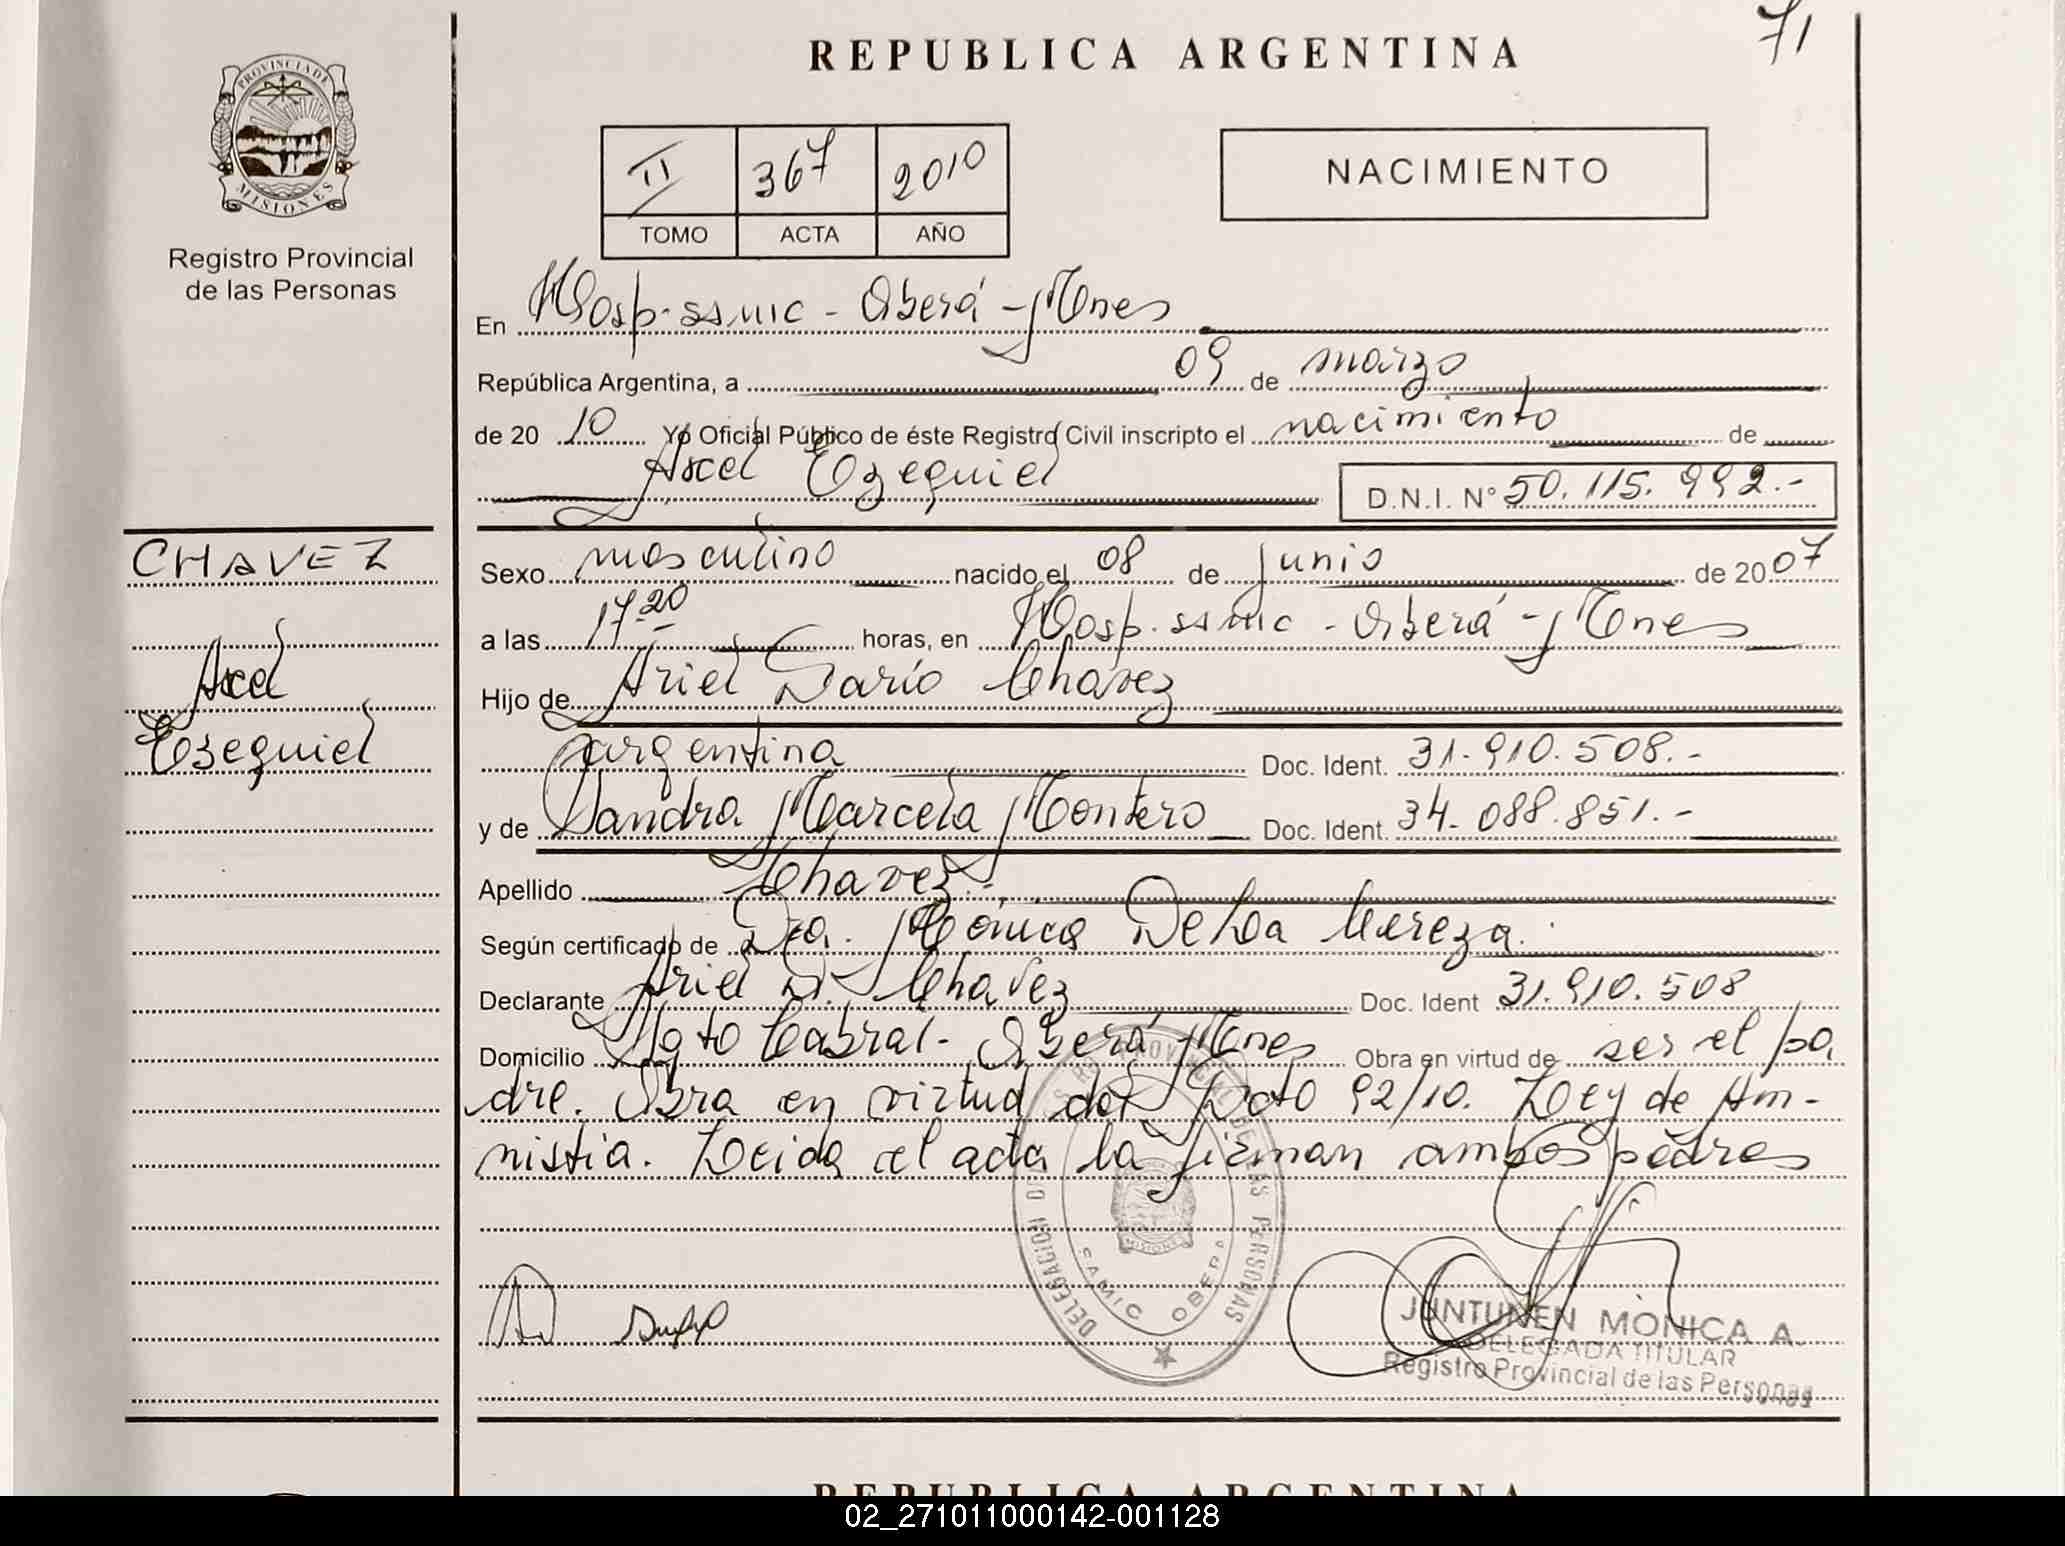 71
REPUBLICA ARGENTINA
PROVINCIA DE MISIONES
Registro Provincial
de las Personas
II 367 2010
TOMO ACTA AÑO
NACIMIENTO
En Hosp. ssmic - Oberá - Mnes
República Argentina, a 09 de marzo
de 20 10 Yo Oficial Público de éste Registro Civil inscripto el nacimiento de
Axel Ezequiel D.N.I. N° 50.115.992.-
CHAVEZ
Axel
Ezequiel
Sexo masculino nacido el 08 de junio de 20 07
a las 17-20 horas, en Hosp. ssmic - Oberá - Mnes
Hijo de Ariel Darío Chávez
argentina Doc. Ident. 31.910.508.-
y de Sandra Marcela Montero Doc. Ident. 34.088.851.-
Apellido Chavez.-
Según certificado de Dra. Mónica De La Cereza.
Declarante Ariel D. Chavez Doc. Ident 31.910.508
Domicilio Sgto Cabral - Oberá Mnes Obra en virtud de ser el pa
dre. Obra en virtud del Dcto 92/10. Ley de Am-
nistia. Leida el acta la firman ambos padres
DELEGACION REG. PROVINCIAL DE LAS PERSONAS
MISIONES
SAMIC OBERA
JUNTUNEN MONICA A.
DELEGADA TITULAR
Registro Provincial de las Personas
REPUBLICA ARGENTINA
02_271011000142-001128